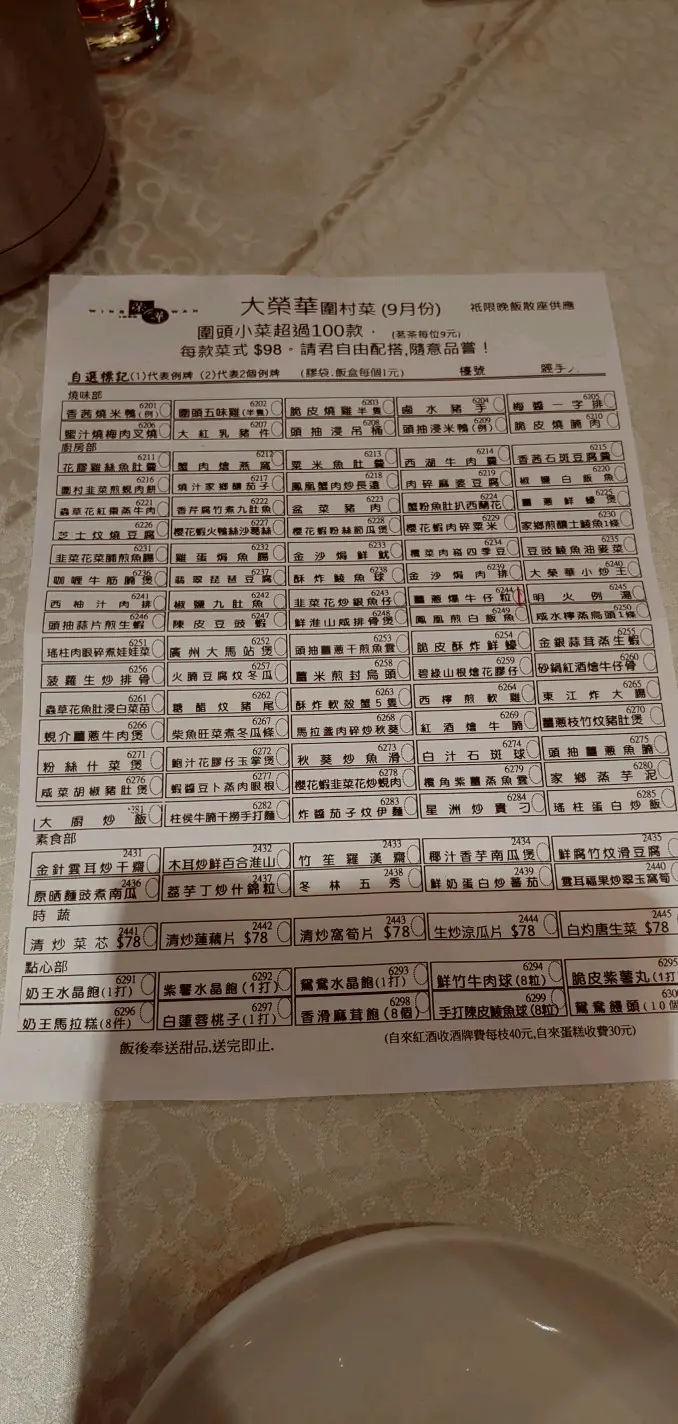 WING WAH
大榮華圍村菜 (9月份) 祇限晚飯散座供應
圍頭小菜超過100款． (茗茶每位9元)
每款菜式 $98。請君自由配搭,隨意品嘗！
自選標記(1)代表例牌 (2)代表2個例牌 (膠袋.飯盒每個1元) 檯號 經手
燒味部
6201 6202 6203 6204 6205
香茜燒米鴨(例) 圍頭五味雞(半隻) 脆皮燒雞半隻 鹵水豬手 梅醬一字排
6206 6207 6208 6209 6210
蜜汁燒梅肉叉燒 大紅乳豬件 頭抽浸吊桶 頭抽浸米鴨(例) 脆皮燒腩肉
廚房部
6211 6212 6213 6214 6215
花膠雞絲魚肚羹 蟹肉燴燕窩 粟米魚肚羹 西湖牛肉羹 香茜石斑豆腐羹
6216 6217 6218 6219 6220
圍村韭菜煎蜆肉餅 燒汁家鄉釀茄子 鳳凰蟹肉炒長遠 肉碎麻婆豆腐 椒鹽白飯魚
6221 6222 6223 6224 6225
蟲草花紅棗蒸牛肉 香芹腐竹煮九肚魚 盆菜豬肉 蟹粉魚肚扒西蘭花 薑蔥鮮蠔煲
6226 6227 6228 6229 6230
芝士炆燒豆腐 櫻花蝦火鴨絲沙葛絲 櫻花蝦粉絲節瓜煲 櫻花蝦肉碎粟米 家鄉煎釀土鯪魚1條
6231 6232 6233 6234 6235
韭菜花菜脯煎魚腸 雞蛋焗魚腸 金沙焗鮮魷 欖菜肉崧四季豆 豆豉鯪魚油麥菜
6236 6237 6238 6239 6240
咖喱牛筋腩煲 翡翠琵琶豆腐 酥炸鯪魚球 金沙焗肉排 大榮華小炒王
6241 6242 6243 6244 6245
西柚汁肉排 椒鹽九肚魚 韭菜花炒銀魚仔 薑蔥爆牛仔粒 明火例湯
6246 6247 6248 6249 6250
頭抽蒜片煎生蝦 陳皮豆豉蝦 鮮淮山咸排骨煲 鳳凰煎白飯魚 咸水檸蒸烏頭1條
6251 6252 6253 6254 6255
瑤柱肉眼碎煮娃娃菜 廣州大馬站煲 頭抽薑蔥干煎魚雲 脆皮酥炸鮮蠔 金銀蒜茸蒸生蝦
6256 6257 6258 6259 6260
菠蘿生炒排骨 火腩豆腐炆冬瓜 薑米煎封烏頭 碧綠山根燴花膠仔 砂鍋紅酒燴牛仔骨
6261 6262 6263 6264 6265
蟲草花魚肚浸白菜苗 糖醋炆豬尾 酥炸軟殼蟹5隻 西檸煎軟雞 東江炸大腸
6266 6267 6268 6269 6270
蜆介薑蔥牛肉煲 柴魚旺菜煮冬瓜條 馬拉盞肉碎炒秋葵 紅酒燴牛腩 薑蔥枝竹炆豬肚煲
6271 6272 6273 6274 6275
粉絲什菜煲 鮑汁花膠仔玉掌煲 秋葵炒魚滑 白汁石斑球 頭抽薑蔥魚腩
6276 6277 6278 6279 6280
咸菜胡椒豬肚煲 蝦醬豆卜蒸肉眼根 櫻花蝦韭菜花炒蜆肉 欖角紫薑蒸魚雲 家鄉蒸芋泥
6281 6282 6283 6284 6285
大廚炒飯 柱侯牛腩干撈手打麵 炸醬茄子炆伊麵 星洲炒賣刁 瑤柱蛋白炒飯
素食部
2431 2432 2433 2434 2435
金針雲耳炒干齋 木耳炒鮮百合淮山 竹笙羅漢齋 椰汁香芋南瓜煲 鮮腐竹炆滑豆腐
2436 2437 2438 2439 2440
原晒麵豉煮南瓜 荔芋丁炒什錦粒 冬林五秀 鮮奶蛋白炒蕃茄 雲耳福果炒翠玉窩筍
時蔬
2441 2442 2443 2444 2445
清炒菜芯 $78 清炒蓮藕片 $78 清炒窩筍片 $78 生炒涼瓜片 $78 白灼唐生菜 $78
點心部
6291 6292 6293 6294 6295
奶王水晶飽(1打) 紫薯水晶飽(1打) 鴛鴦水晶飽(1打) 鮮竹牛肉球(8粒) 脆皮紫薯丸(1打
6296 6297 6298 6299 6300
奶王馬拉糕(8件) 白蓮蓉桃子(1打) 香滑麻茸飽(8個) 手打陳皮鯪魚球(8粒) 鴛鴦饅頭(10個
飯後奉送甜品,送完即止. (自來紅酒收酒牌費每枝40元,自來蛋糕收費30元)